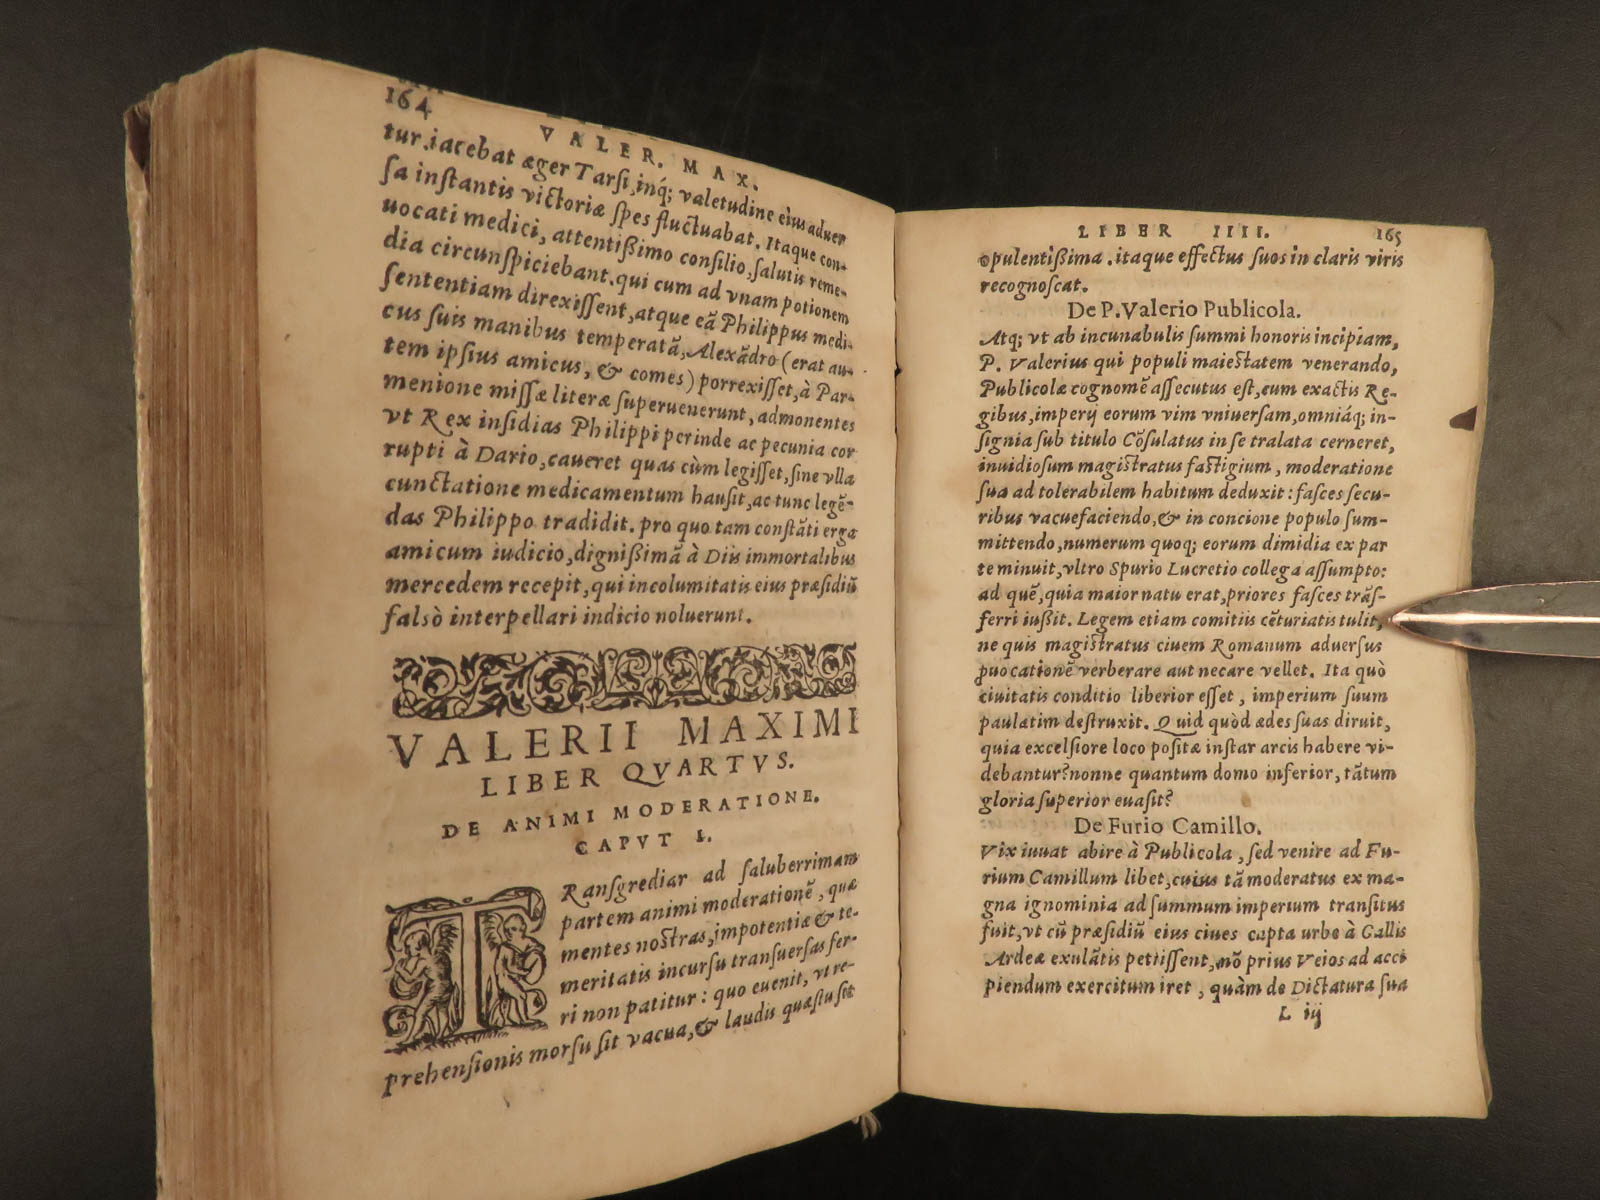 164
VALER. MAX.
tur. iacebat æger Tarsi, inq́; valetudine eius aduer
ſa inſtantis victoriæ ſpes fluctuabat. Itaque con-
uocati medici, attentißimo conſilio, ſalutis reme-
dia circunſpiciebant. qui cum ad vnam potionem
ſententiam direxiſſent, atque eã Philippus medi-
cus ſuis manibus temperatã, Alexãdro (erat au-
tem ipſius amicus, & comes) porrexiſſet, à Par-
menione miſſæ literæ ſuperuenerunt, admonentes
vt Rex inſidias Philippi perinde ac pecunia cor
rupti à Dario, caueret quas cùm legiſſet, ſine vlla
cunctatione medicamentum hauſit, ac tunc legẽ-
das Philippo tradidit. pro quo tam conſtãti erga
amicum iudicio, dignißimã à Diis immortalibus
mercedem recepit, qui incolumitatis eius præſidiũ
falsò interpellari indicio noluerunt.
VALERII MAXIMI
LIBER QVARTVS.
DE ANIMI MODERATIONE.
CAPVT I.
TRanſgrediar ad ſaluberrimam
partem animi moderationẽ, quæ
mentes noſtras, impotentiæ & te-
meritatis incurſu tranſuerſas fer-
ri non patitur: quo euenit, vt re-
prehenſionis morſu ſit vacua, & laudis quæſtu ſit
LIBER IIII. 165
opulentißima. itaque effectus ſuos in claris viris
recognoſcat.
De P. Valerio Publicola.
Atq; vt ab incunabulis ſummi honoris incipiam,
P. Valerius qui populi maieſtatem venerando,
Publicolæ cognomẽ aſſecutus eſt, cum exactis Re-
gibus, imperij eorum vim vniuerſam, omniáq; in-
ſignia ſub titulo Cõſulatus in ſe tralata cerneret,
inuidioſum magiſtratus faſtigium, moderatione
ſua ad tolerabilem habitum deduxit: faſces ſecu-
ribus vacuefaciendo, & in concione populo ſum-
mittendo, numerum quoq; eorum dimidia ex par
te minuit, vltro Spurio Lucretio collega aſſumpto:
ad quẽ, quia maior natu erat, priores faſces trãſ-
ferri iußit. Legem etiam comitiis cẽturiatis tulit,
ne quis magiſtratus ciuem Romanum aduerſus
ꝓuocationẽ verberare aut necare vellet. Ita quò
ciuitatis conditio liberior eſſet, imperium ſuum
paulatim deſtruxit. Quid quòd ædes ſuas diruit,
quia excelſiore loco poſitæ inſtar arcis habere vi-
debantur? nonne quantum domo inferior, tãtum
gloria ſuperior euaſit?
De Furio Camillo.
Vix iuuat abire à Publicola, ſed venire ad Fu-
rium Camillum libet, cuius tã moderatus ex ma-
gna ignominia ad ſummum imperium tranſitus
fuit, vt cũ præſidiũ eius ciues capta vrbe à Gallis
Ardeæ exulãtis petiiſſent, nõ prius Veios ad acci
piendum exercitum iret, quàm de Dictatura ſua
L iij